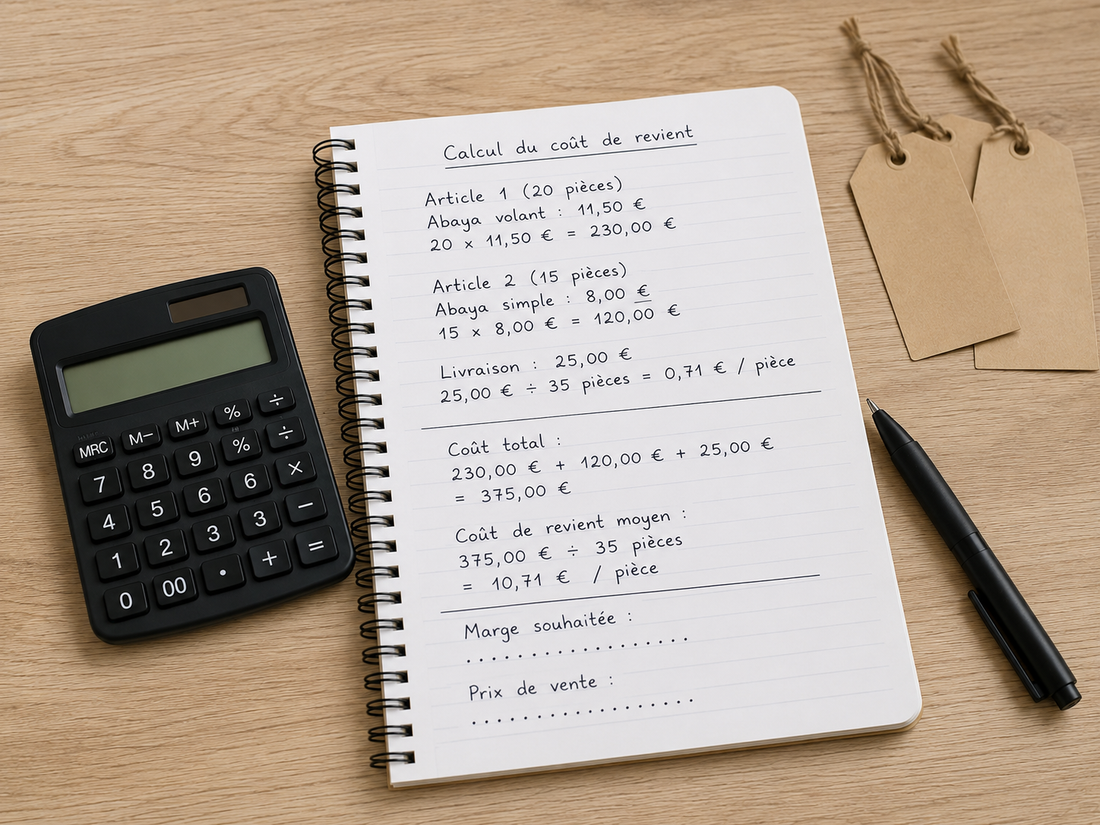 Calcul du coût de revient
Article 1 (20 pièces)
Abaya volant : 11,50 €
20 × 11,50 € = 230,00 €
Article 2 (15 pièces)
Abaya simple : 8,00 €
15 × 8,00 € = 120,00 €
Livraison : 25,00 €
25,00 € ÷ 35 pièces = 0,71 € / pièce
Coût total :
230,00 € + 120,00 € + 25,00 €
= 375,00 €
Coût de revient moyen :
375,00 € ÷ 35 pièces
= 10,71 € / pièce
Marge souhaitée :
. . . . . . . . . . . . . . . . . .
Prix de vente :
. . . . . . . . . . . . . . . . . .
MRC M− M+ % ÷
7 8 9 % ÷
4 5 6 6 ×
1 2 3 3 −
0 00 · + =